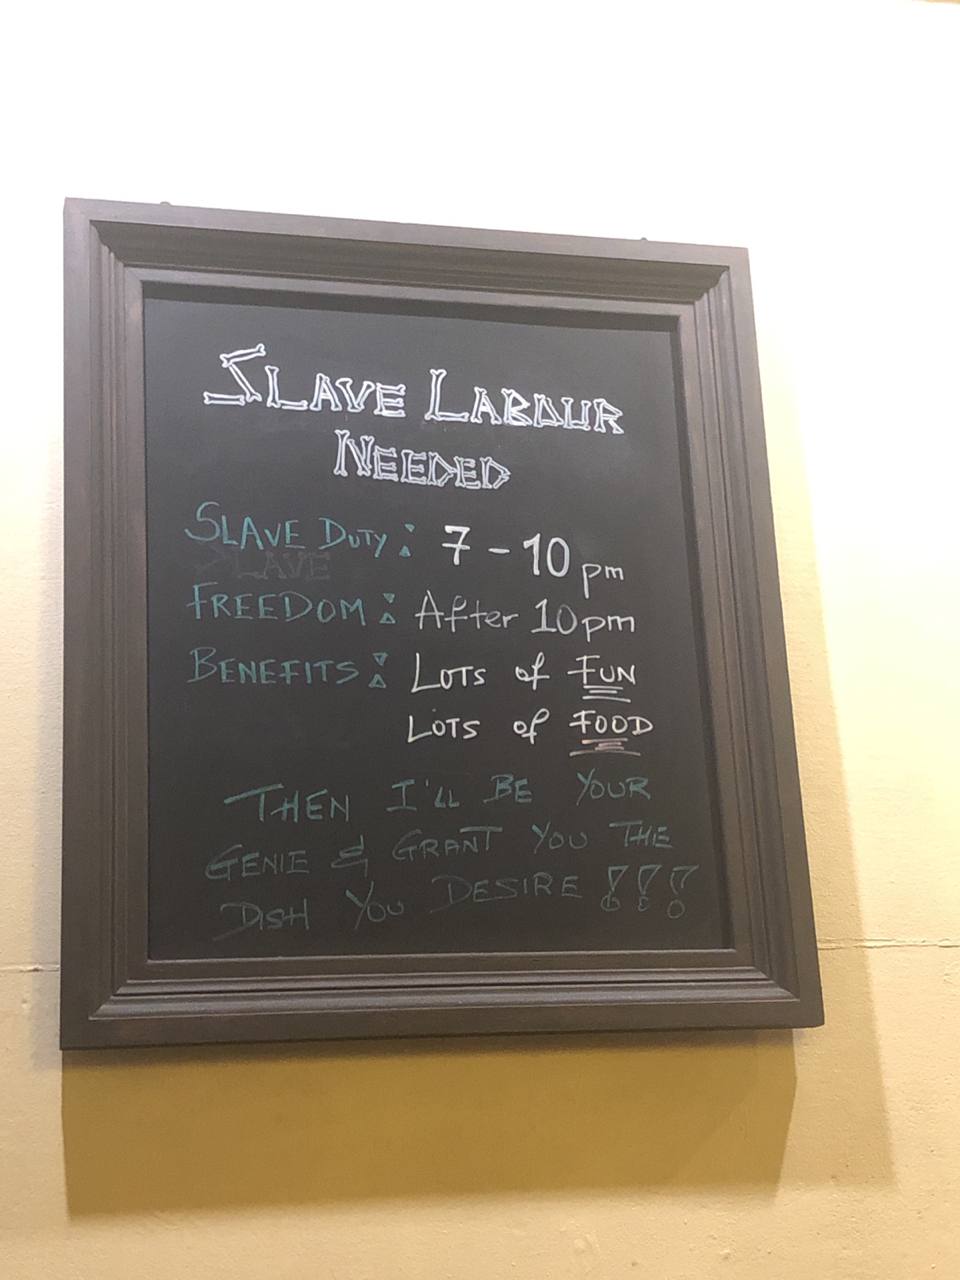 SLAVE LABOUR
NEEDED
SLAVE DUTY: 7 - 10 pm
SLAVE
FREEDOM: After 10pm
BENEFITS: LOTS of FUN
LOTS of FOOD
THEN I'LL BE YOUR
GENIE & GRANT YOU THE
DISH YOU DESIRE !!!